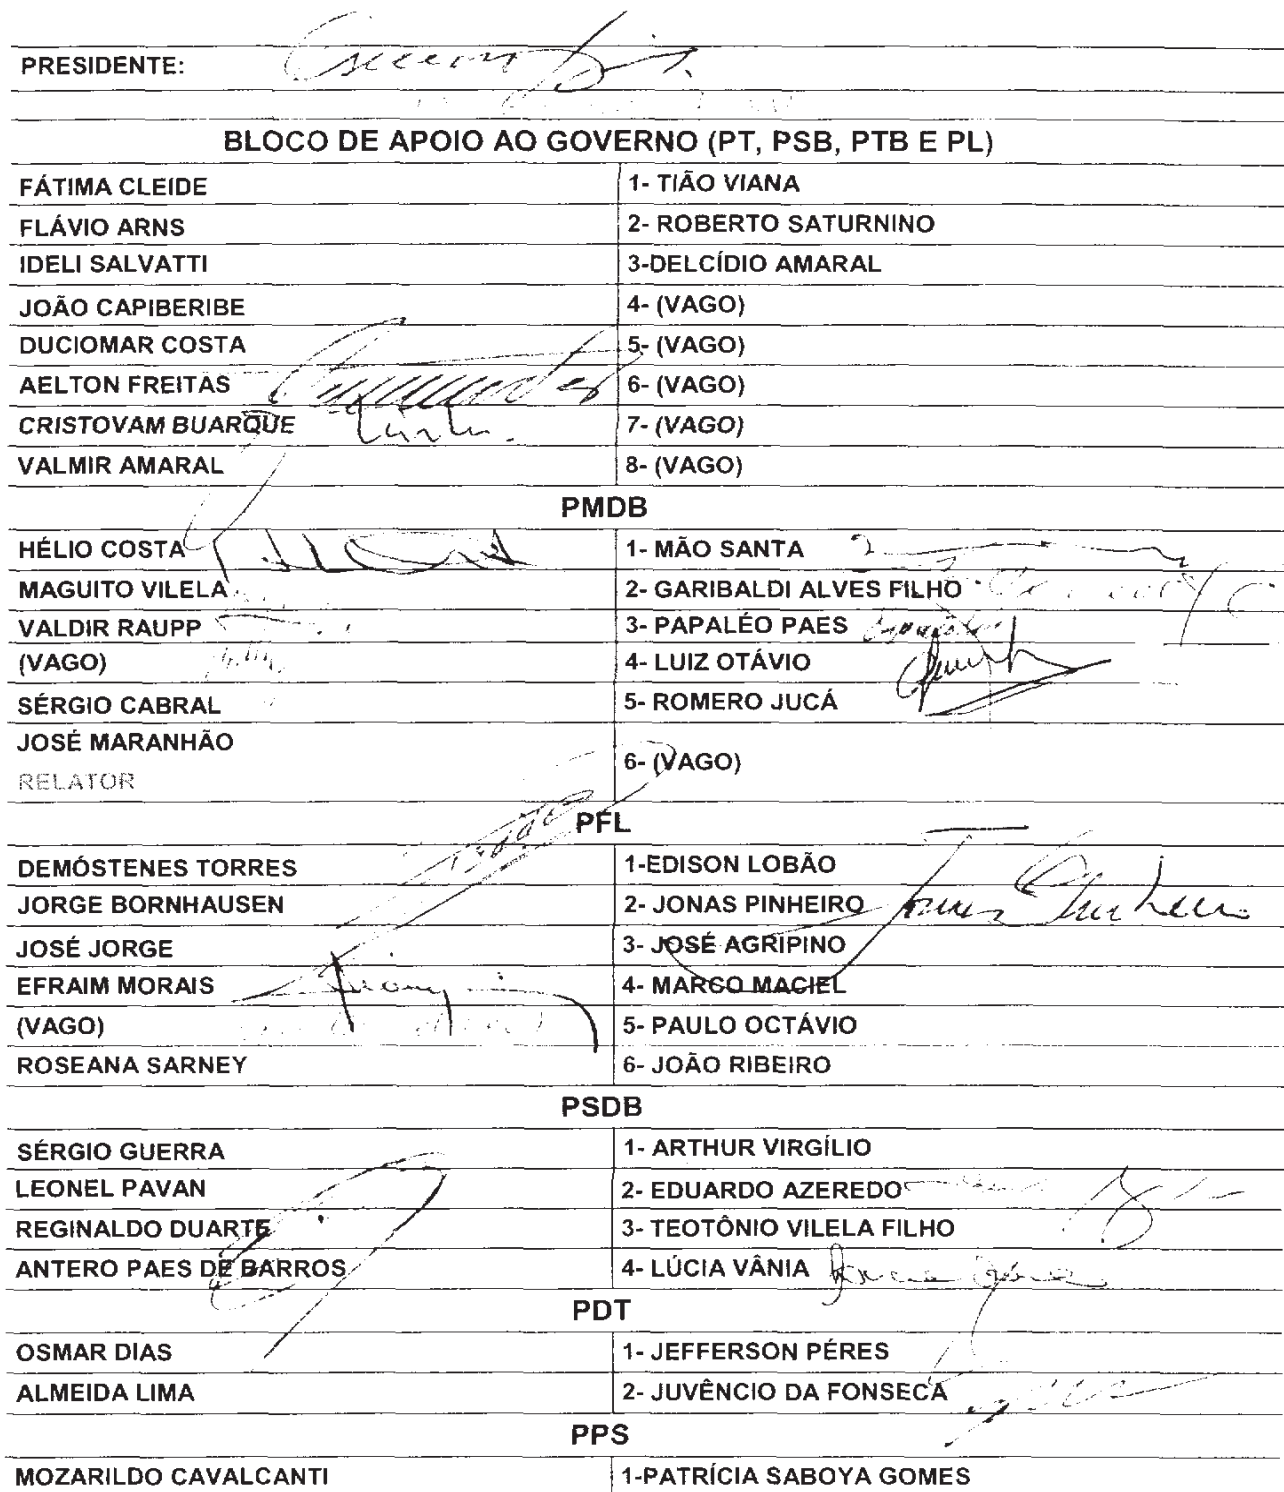 PRESIDENTE:
BLOCO DE APOIO AO GOVERNO (PT, PSB, PTB E PL)
FÁTIMA CLEIDE 1- TIÃO VIANA
FLÁVIO ARNS 2- ROBERTO SATURNINO
IDELI SALVATTI 3-DELCÍDIO AMARAL
JOÃO CAPIBERIBE 4- (VAGO)
DUCIOMAR COSTA 5- (VAGO)
AELTON FREITAS 6- (VAGO)
CRISTOVAM BUARQUE 7- (VAGO)
VALMIR AMARAL 8- (VAGO)
PMDB
HÉLIO COSTA 1- MÃO SANTA
MAGUITO VILELA 2- GARIBALDI ALVES FILHO
VALDIR RAUPP 3- PAPALÉO PAES
(VAGO) 4- LUIZ OTÁVIO
SÉRGIO CABRAL 5- ROMERO JUCÁ
JOSÉ MARANHÃO 6- (VAGO)
RELATOR
PFL
DEMÓSTENES TORRES 1-EDISON LOBÃO
JORGE BORNHAUSEN 2- JONAS PINHEIRO
JOSÉ JORGE 3- JOSÉ AGRIPINO
EFRAIM MORAIS 4- MARCO MACIEL
(VAGO) 5- PAULO OCTÁVIO
ROSEANA SARNEY 6- JOÃO RIBEIRO
PSDB
SÉRGIO GUERRA 1- ARTHUR VIRGÍLIO
LEONEL PAVAN 2- EDUARDO AZEREDO
REGINALDO DUARTE 3- TEOTÔNIO VILELA FILHO
ANTERO PAES DE BARROS 4- LÚCIA VÂNIA
PDT
OSMAR DIAS 1- JEFFERSON PÉRES
ALMEIDA LIMA 2- JUVÊNCIO DA FONSECA
PPS
MOZARILDO CAVALCANTI 1-PATRÍCIA SABOYA GOMES